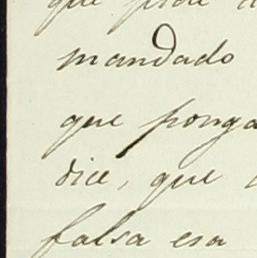 que pide
mandado
que ponga
dice, que
falsa esa